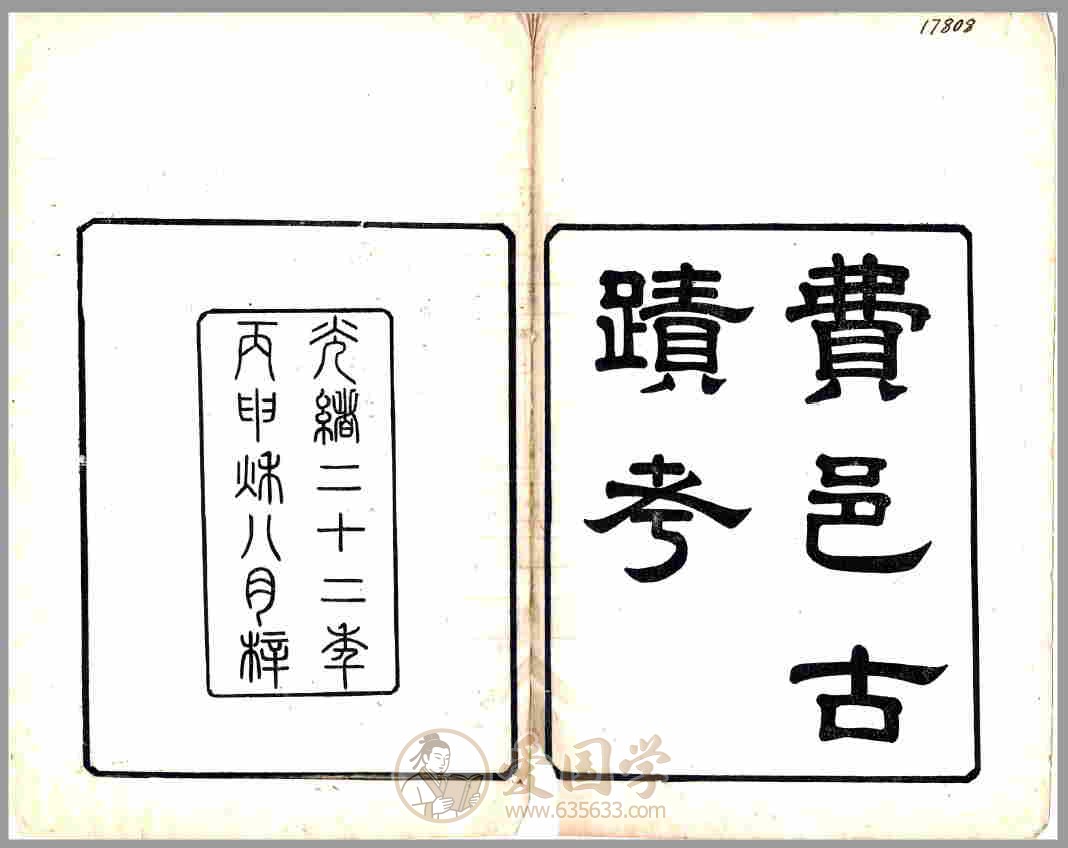 17808
費邑古
蹟考
光緒二十二年
丙申秌八月梓
爱国学
www.635633.com